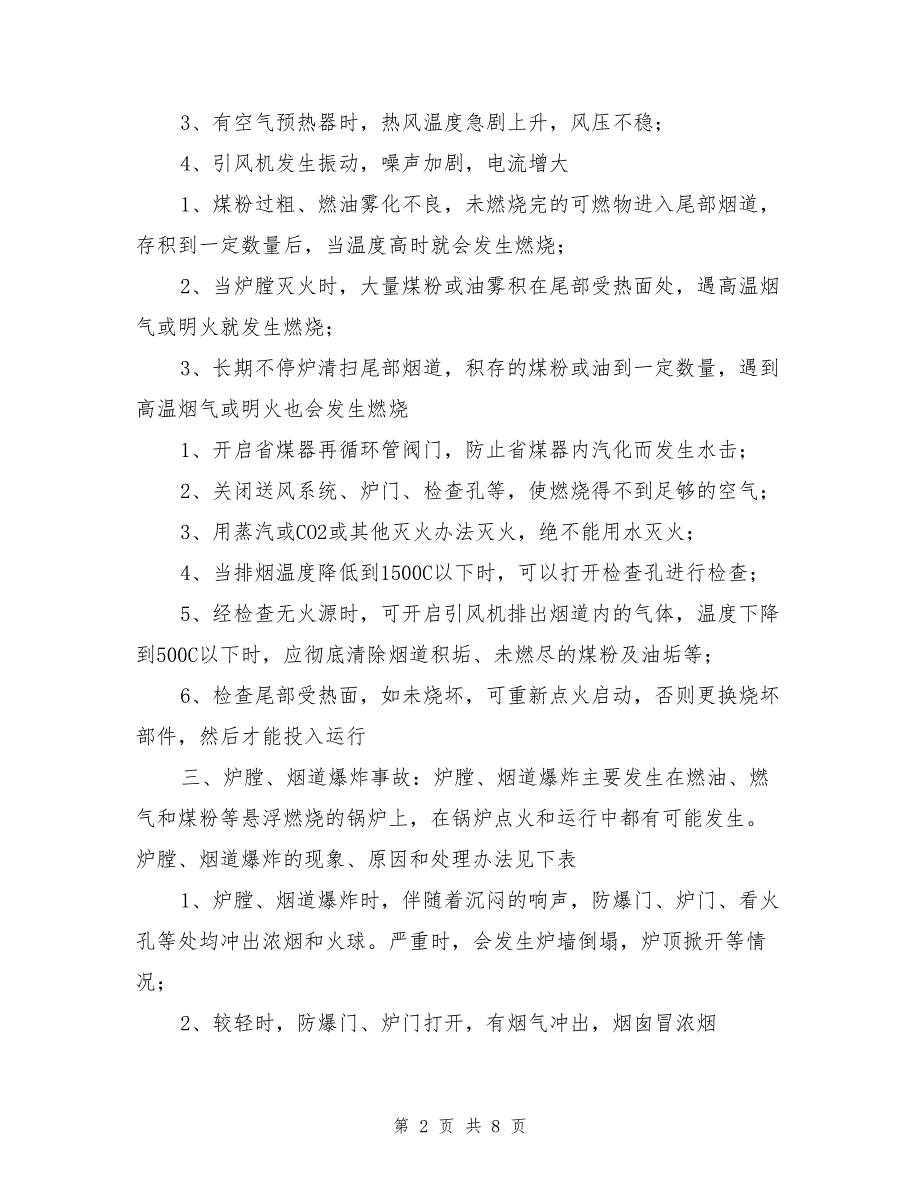 3、有空气预热器时，热风温度急剧上升，风压不稳；
4、引风机发生振动，噪声加剧，电流增大
1、煤粉过粗、燃油雾化不良，未燃烧完的可燃物进入尾部烟道，
存积到一定数量后，当温度高时就会发生燃烧；
2、当炉膛灭火时，大量煤粉或油雾积在尾部受热面处，遇高温烟
气或明火就发生燃烧；
3、长期不停炉清扫尾部烟道，积存的煤粉或油到一定数量，遇到
高温烟气或明火也会发生燃烧
1、开启省煤器再循环管阀门，防止省煤器内汽化而发生水击；
2、关闭送风系统、炉门、检查孔等，使燃烧得不到足够的空气；
3、用蒸汽或CO2或其他灭火办法灭火，绝不能用水灭火；
4、当排烟温度降低到1500C以下时，可以打开检查孔进行检查；
5、经检查无火源时，可开启引风机排出烟道内的气体，温度下降
到500C以下时，应彻底清除烟道积垢、未燃尽的煤粉及油垢等；
6、检查尾部受热面，如未烧坏，可重新点火启动，否则更换烧坏
部件，然后才能投入运行
三、炉膛、烟道爆炸事故：炉膛、烟道爆炸主要发生在燃油、燃
气和煤粉等悬浮燃烧的锅炉上，在锅炉点火和运行中都有可能发生。
炉膛、烟道爆炸的现象、原因和处理办法见下表
1、炉膛、烟道爆炸时，伴随着沉闷的响声，防爆门、炉门、看火
孔等处均冲出浓烟和火球。严重时，会发生炉墙倒塌，炉顶掀开等情
况；
2、较轻时，防爆门、炉门打开，有烟气冲出，烟囱冒浓烟
第 2 页 共 8 页